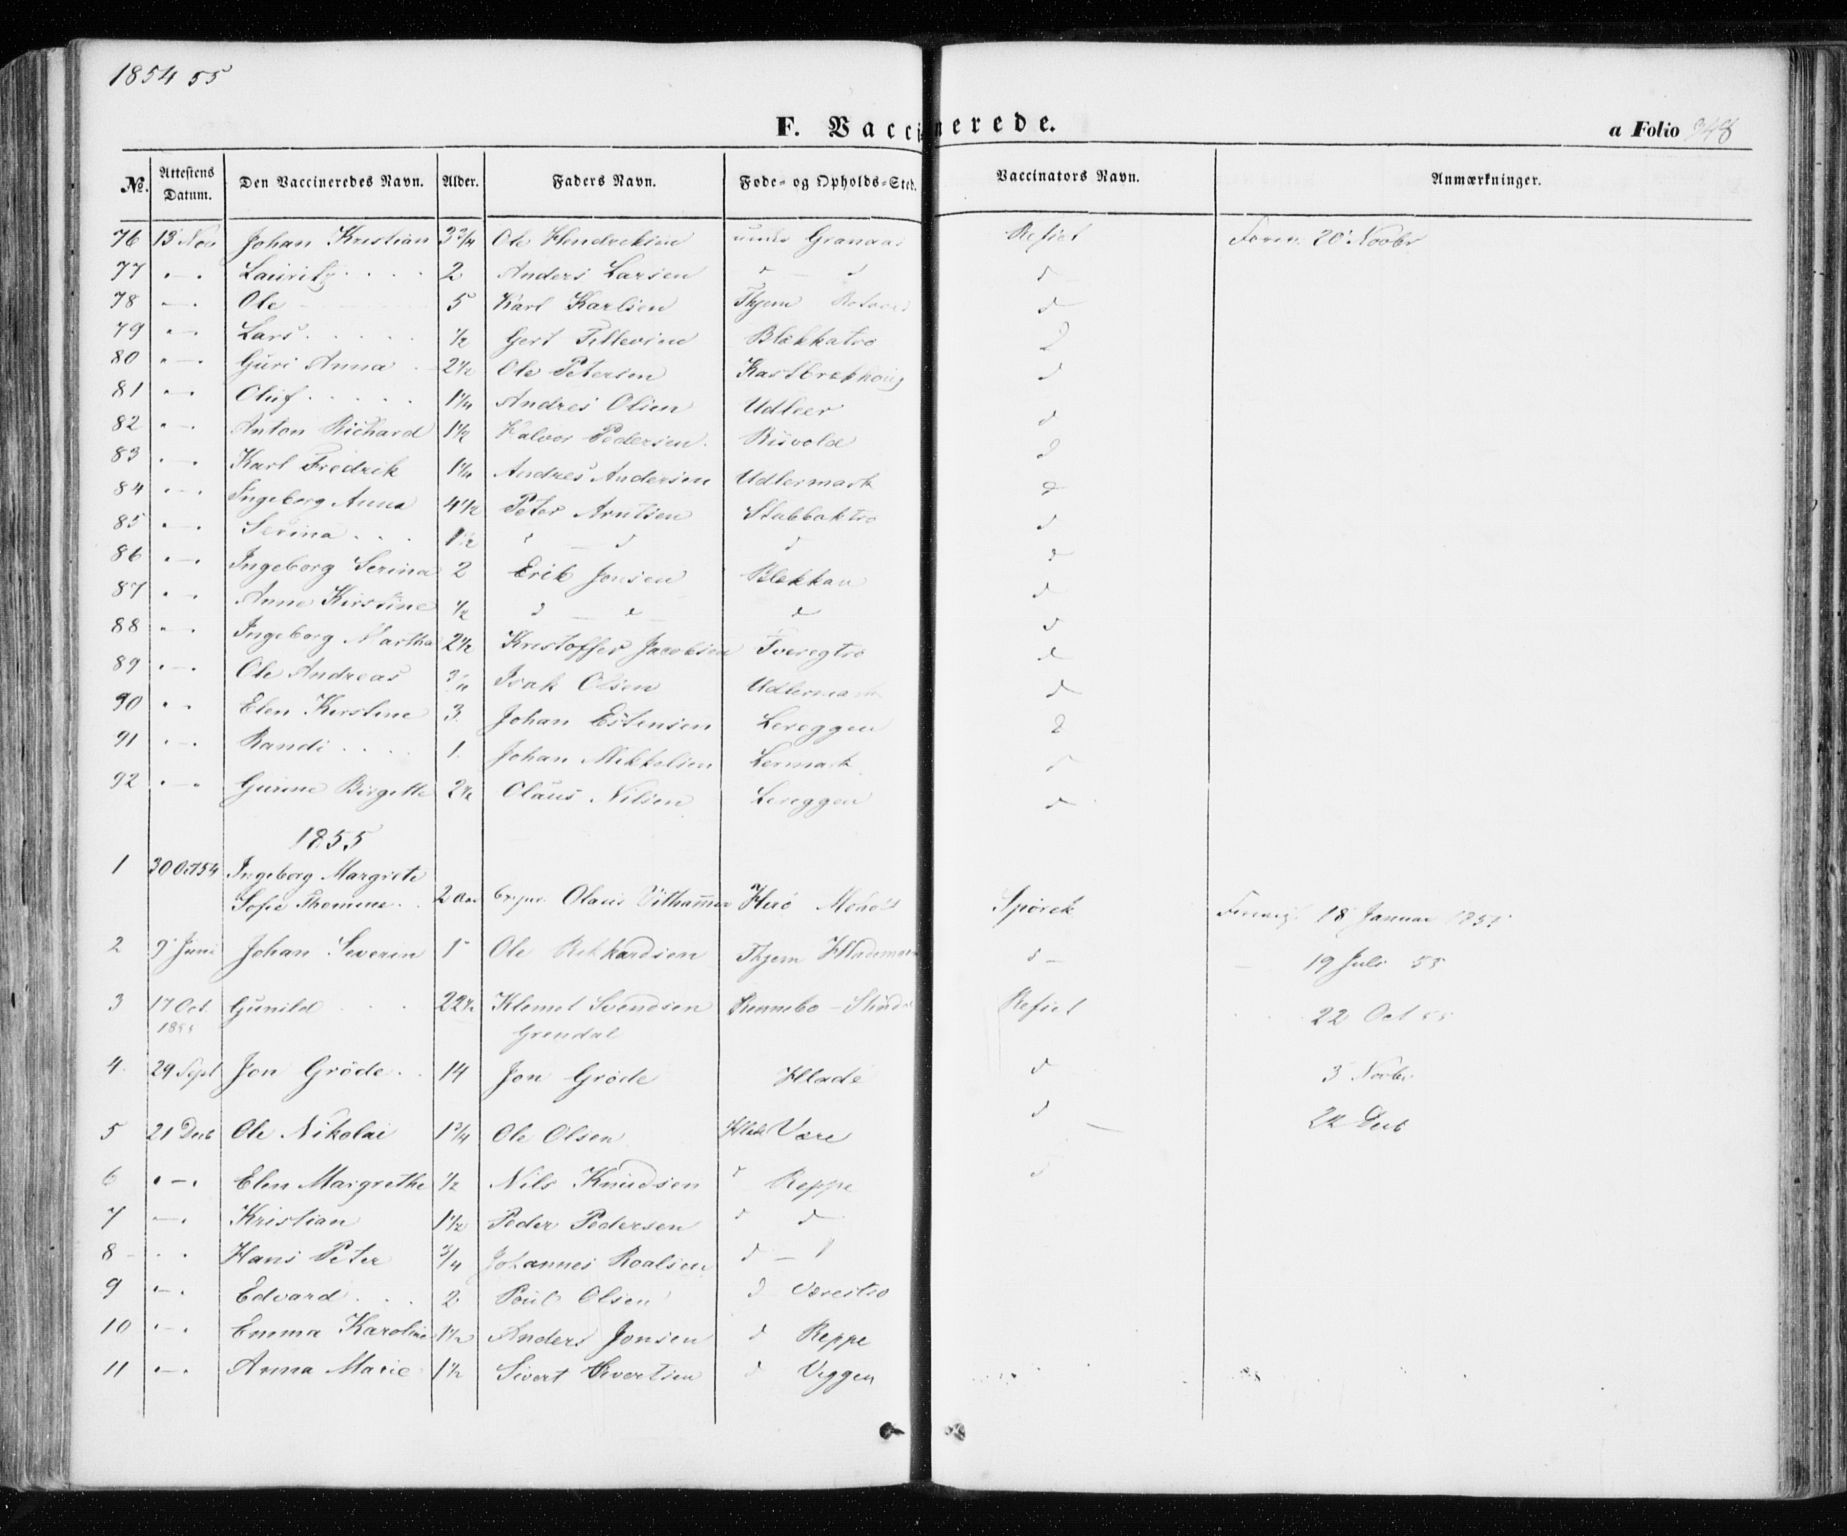 1854 55
F. Vaccinerede.
a Folio 348
No. Attestens Datum. Den Vaccineredes Navn. Alder. Faders Navn. Føde- og Opholds-Sted. Vaccinators Navn. Anmærkninger.
76 13 Nov Johan Kristian 3 3/4 Ole Hendreksen under Granaas Refset 20 Novbr
77 " - " Lauritz 2 Anders Larsen d - d d
78 " - " Ole 5 Karl Karlsen Thjem d
79 " - " Lars 1/2 Gert Blekkatrø d
80 " - " Guri Anna 2 1/2 Ole Petersen d
81 " - " Oluf 1 1/4 Andres Olsen Udleer d
82 " - " Anton Richard 1 1/2 Halvor Pedersen Risvold d
83 " - " Karl Fredrik 1 1/4 Andres Andersen Udlermark d
84 " - " Ingeborg Anna 4 1/2 Peter Arntsen Stubbaktrø d
85 " - " Serina 1 1/2 d - d d d
86 " - " Ingeborg Serina 2 Erik Jonsen Blekkan d
87 " - " Anne Kirstine 1/2 d - d - d d
88 " - " Ingeborg Martha 2 1/2 Kristoffer Jacobsen Tveregtrø d
89 " - " Ole Andreas 3/4 Isak Olsen Udlermark d
90 " - " Elen Kirstine 3 Johan Estensen Lereggen d
91 " - " Randi 1 Johan Mikkelsen Lermark d
92 " - " Gurine Birgitte 2 1/2 Olaus Nilsen Lereggen d
1855
1 30 Oct 54 Ingeborg Margrete
Sofie Thomine 2 Aar Olaus Spørck 18 Januar
2 9 Juni Johan Severin 1 Ole Rikkardsen Thjem d - - 19 Juli 55
3 17 Oct. Gunild 22 1/2 Klemet Svendsen Rennebo - Refset 22 Oct 55
1855 Grendal
4 29 Sept Jon Grøde 14 Jon Grøde Hlade d 3 Novbr
5 21 Decb Ole Nikolai 1 3/4 Ole Olsen Hlade Være d - 22 Decb
6 " - " Elen Margrethe 1/2 Nils Knudsen d Reppe d
7 " - " Kristian 1 1/2 Peder Pedersen d d
8 " " Hans Peter 3/4 Johannes Roalsen d - d
9 " - " Edvard 2 Poul Olsen d Værestrø
10 " - " Emma Karoline 1 1/2 Anders Jonsen d Reppe
11 " - " Anna Marie 1 1/2 Sivert Sivertsen d Viggen